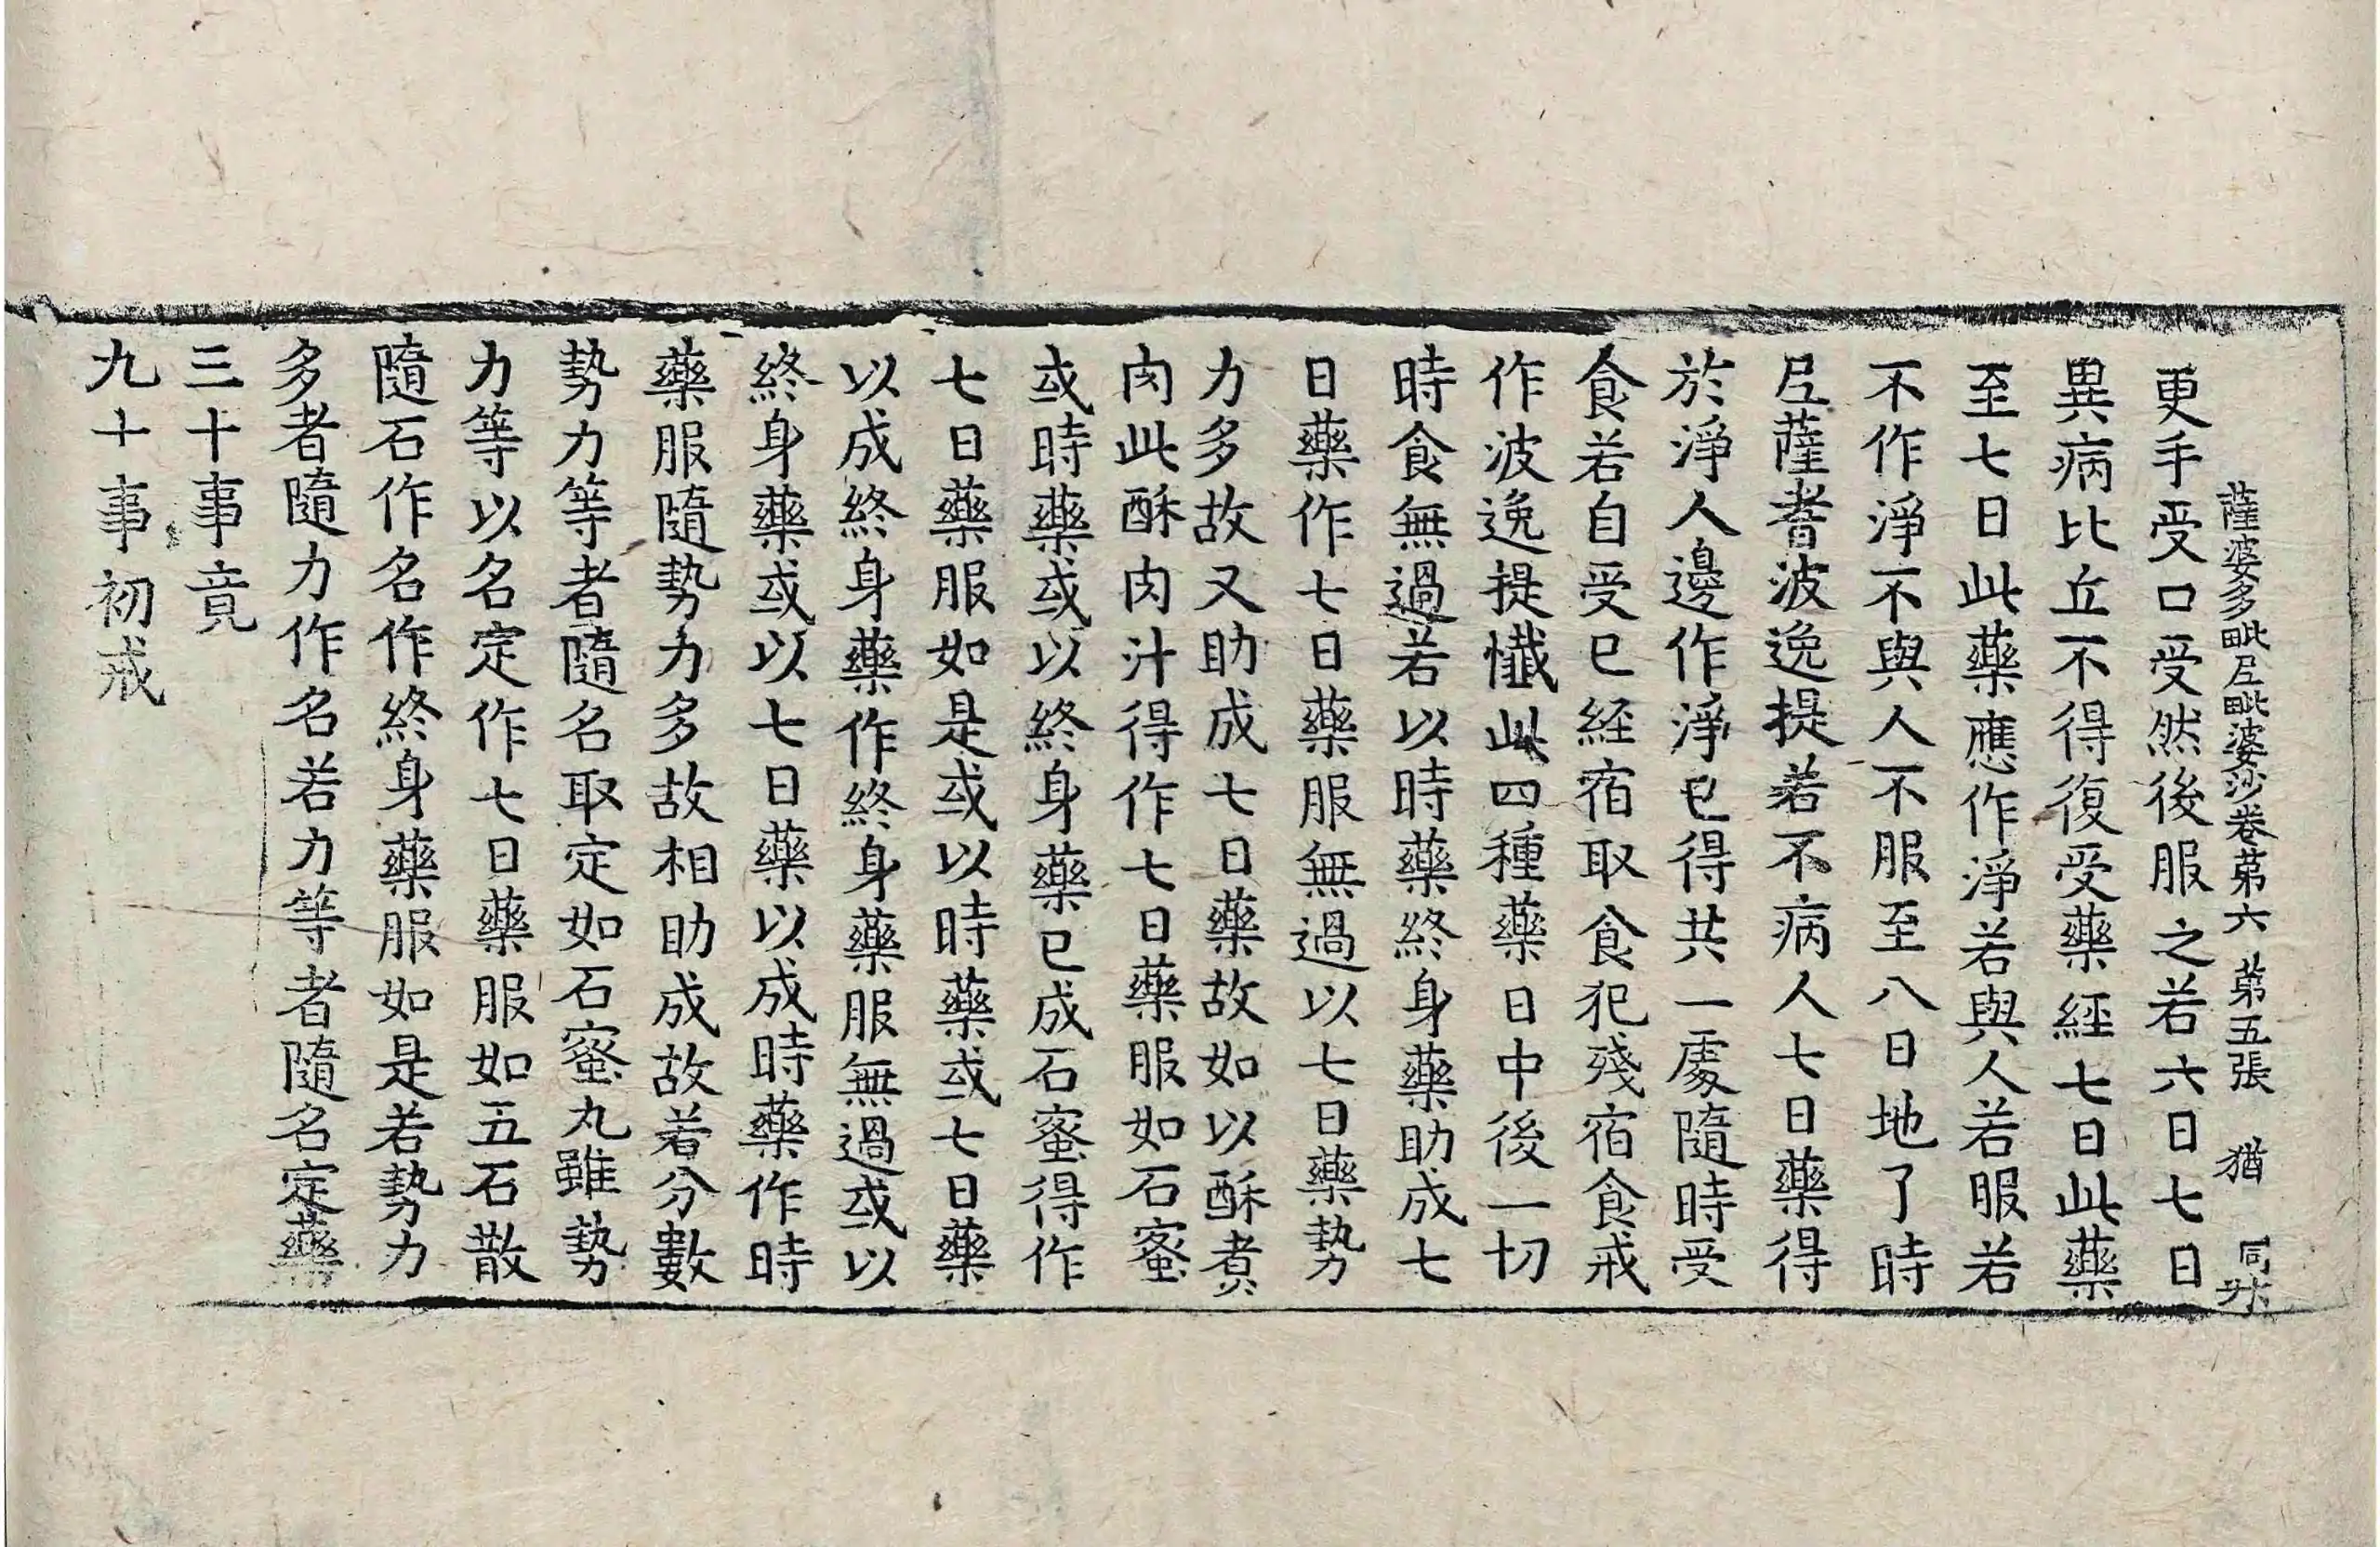 薩婆多毗尼毗婆沙卷第六 第五張 猶 同
更手受口受然後服之若六日七日
異病比丘不得復受藥經七日此藥
至七日此藥應作淨若與人若服若
不作淨不與人不服至八日地了時
尼薩耆波逸提若不病人七日藥得
於淨人邊作淨已得共一處隨時受
食若自受已経宿取食犯殘宿食戒
作波逸提懺此四種藥日中後一切
時食無過若以時藥終身藥助成七
日藥作七日藥服無過以七日藥勢
力多故又助成七日藥故如以酥煮
肉此酥肉汁得作七日藥服如石蜜
或時藥或以終身藥已成石蜜得作
七日藥服如是或以時藥或七日藥
以成終身藥作終身藥服無過或以
終身藥或以七日藥以成時藥作時
藥服隨勢力多故相助成故若分數
勢力等者隨名取定如石蜜丸雖勢
力等以名定作七日藥服如五石散
隨石作名作終身藥服如是若勢力
多者隨力作名若力等者隨名定藥
三十事竟
九十事初戒